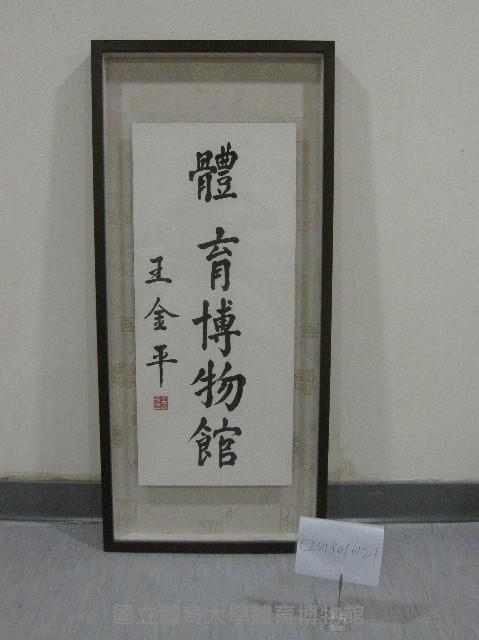 體育博物館
王金平
國立體育大學體育博物館